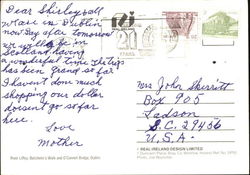 Dear Shirley & all
were in Dublin
now Day after tomorrow
we will be in
Scotland, having
a wonderful time. Things
has been grand so far
I haven't done much
shopping our dollar
doesn't go so far
here.
Love
Mother
River Liffey, Bachelor's Walk and O'Connell Bridge, Dublin.
Mrs John Sherritt
Box 905
Ladson
S.C. 29456
U.S.A.
REAL IRELAND DESIGN LIMITED